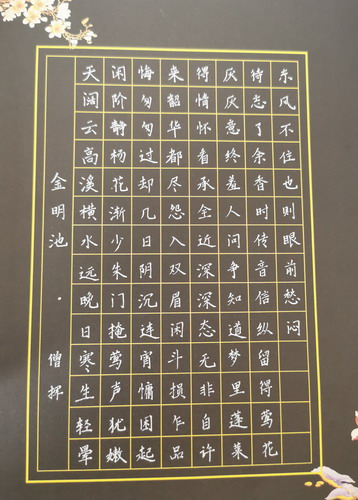 金明池·僧挥
天阔云高溪横水远晚日寒生轻晕
闲阶静杨花渐少朱门掩莺声犹嫩
悔匆匆过却几日阴沉连宵慵困起
来韶华都尽怨入双眉闲斗损乍品
得情怀看承全近深深态无非自许
厌厌意终羞人问争知道梦里蓬莱
待忘了余香时传音信纵留得莺花
东风不住也则眼前愁闷